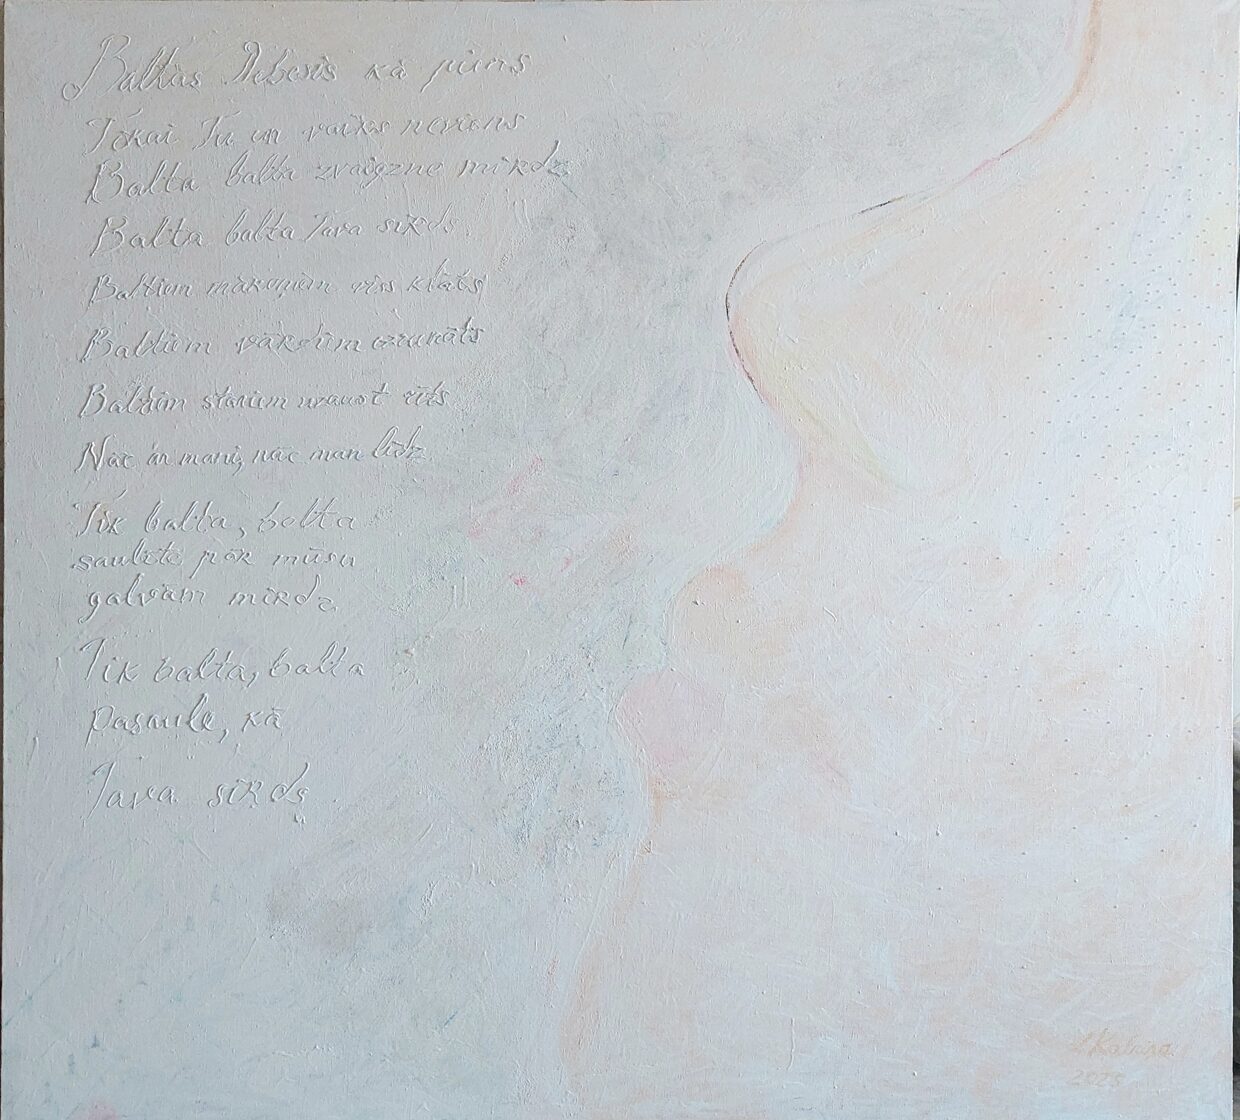 Baltas Debesis kā piens
Tikai Tu un vairs neviens
Balta balta zvaigzne mirdz
Balta balta Tava sirds.
Baltiem mākoņiem viss klāts
Baltiem vārdiem uzrunāts
Baltiem stariem uzaust rīts
Nāc ar mani, nāc man līdz
Tik balta, balta
saulīte pār mūsu
galvām mirdz
Tik balta, balta
pasaule, kā
Tava sirds.
2025